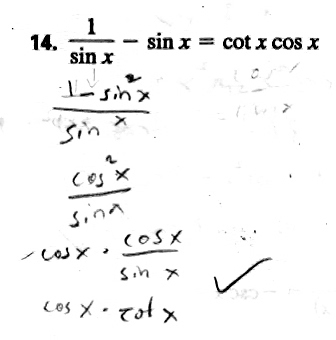 14. 1/sin x − sin x = cot x cos x
1 - sin²x / sin x
cos²x / sin x
cos x · cos x / sin x
cos x · cot x